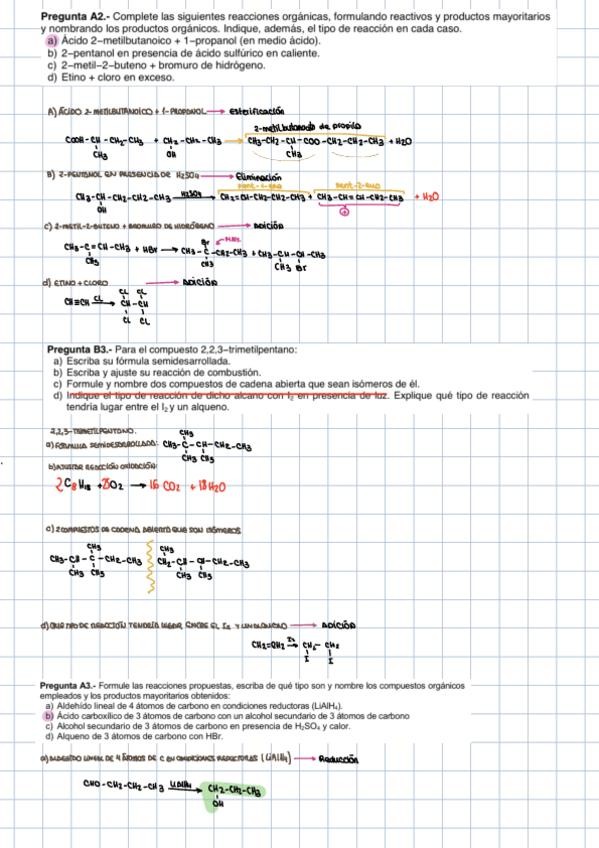 Pregunta A2.- Complete las siguientes reacciones orgánicas, formulando reactivos y productos mayoritarios
y nombrando los productos orgánicos. Indique, además, el tipo de reacción en cada caso.
a) Ácido 2–metilbutanoico + 1–propanol (en medio ácido).
b) 2–pentanol en presencia de ácido sulfúrico en caliente.
c) 2–metil–2–buteno + bromuro de hidrógeno.
d) Etino + cloro en exceso.
A) ÁCIDO 2-METILBUTANOICO + 1-PROPANOL → Esterificación
2-metilbutanoato de propilo
COOH-CH-CH2-CH3 + CH2-CH2-CH3 → CH3-CH2-CH-COO-CH2-CH2-CH3 + H2O
CH3 OH CH3
B) 2-PENTANOL EN PRESENCIA DE H2SO4 → Eliminación
pent-1-eno pent-2-eno
CH3-CH-CH2-CH2-CH3 H2SO4 → CH2=CH-CH2-CH2-CH3 + CH3-CH=CH-CH2-CH3 + H2O
OH
C) 2-METIL-2-BUTENO + BROMURO DE HIDRÓGENO → ADICIÓN
Br
CH3-C=CH-CH3 + HBr → CH3-C-CH2-CH3 + CH3-CH-CH-CH3
CH3 CH3 CH3 Br
d) ETINO + CLORO → ADICIÓN
CL CL
CH≡CH CL → CH-CH
CL CL
Pregunta B3.- Para el compuesto 2,2,3–trimetilpentano:
a) Escriba su fórmula semidesarrollada.
b) Escriba y ajuste su reacción de combustión.
c) Formule y nombre dos compuestos de cadena abierta que sean isómeros de él.
d) Indique el tipo de reacción de dicho alcano con I2 en presencia de luz. Explique qué tipo de reacción
tendría lugar entre el I2 y un alqueno.
2,2,3-TRIMETILPENTANO.
CH3
a) FÓRMULA SEMIDESARROLLADA: CH3-C-CH-CH2-CH3
CH3 CH3
b) AJUSTAR REACCIÓN OXIDACIÓN:
2C8H18 + 25O2 → 16 CO2 + 18H2O
c) 2 COMPUESTOS DE CADENA ABIERTA QUE SON ISÓMEROS
CH3 CH3
CH3-CH-C-CH2-CH3 CH2-CH-CH-CH2-CH3
CH3 CH3 CH3 CH3
d) QUÉ TIPO DE REACCIÓN TENDRÍA LUGAR ENTRE EL I2 Y UN ALQUENO → ADICIÓN
CH2=CH2 I2 → CH2-CH2
I I
Pregunta A3.- Formule las reacciones propuestas, escriba de qué tipo son y nombre los compuestos orgánicos
empleados y los productos mayoritarios obtenidos:
a) Aldehído lineal de 4 átomos de carbono en condiciones reductoras (LiAlH4).
b) Ácido carboxílico de 3 átomos de carbono con un alcohol secundario de 3 átomos de carbono
c) Alcohol secundario de 3 átomos de carbono en presencia de H2SO4 y calor.
d) Alqueno de 3 átomos de carbono con HBr.
a) ALDEHÍDO LINEAL DE 4 ÁTOMOS DE C EN CONDICIONES REDUCTORAS (LiAlH4) → Reducción
CHO-CH2-CH2-CH3 LiAlH4 → CH2-CH2-CH3
OH